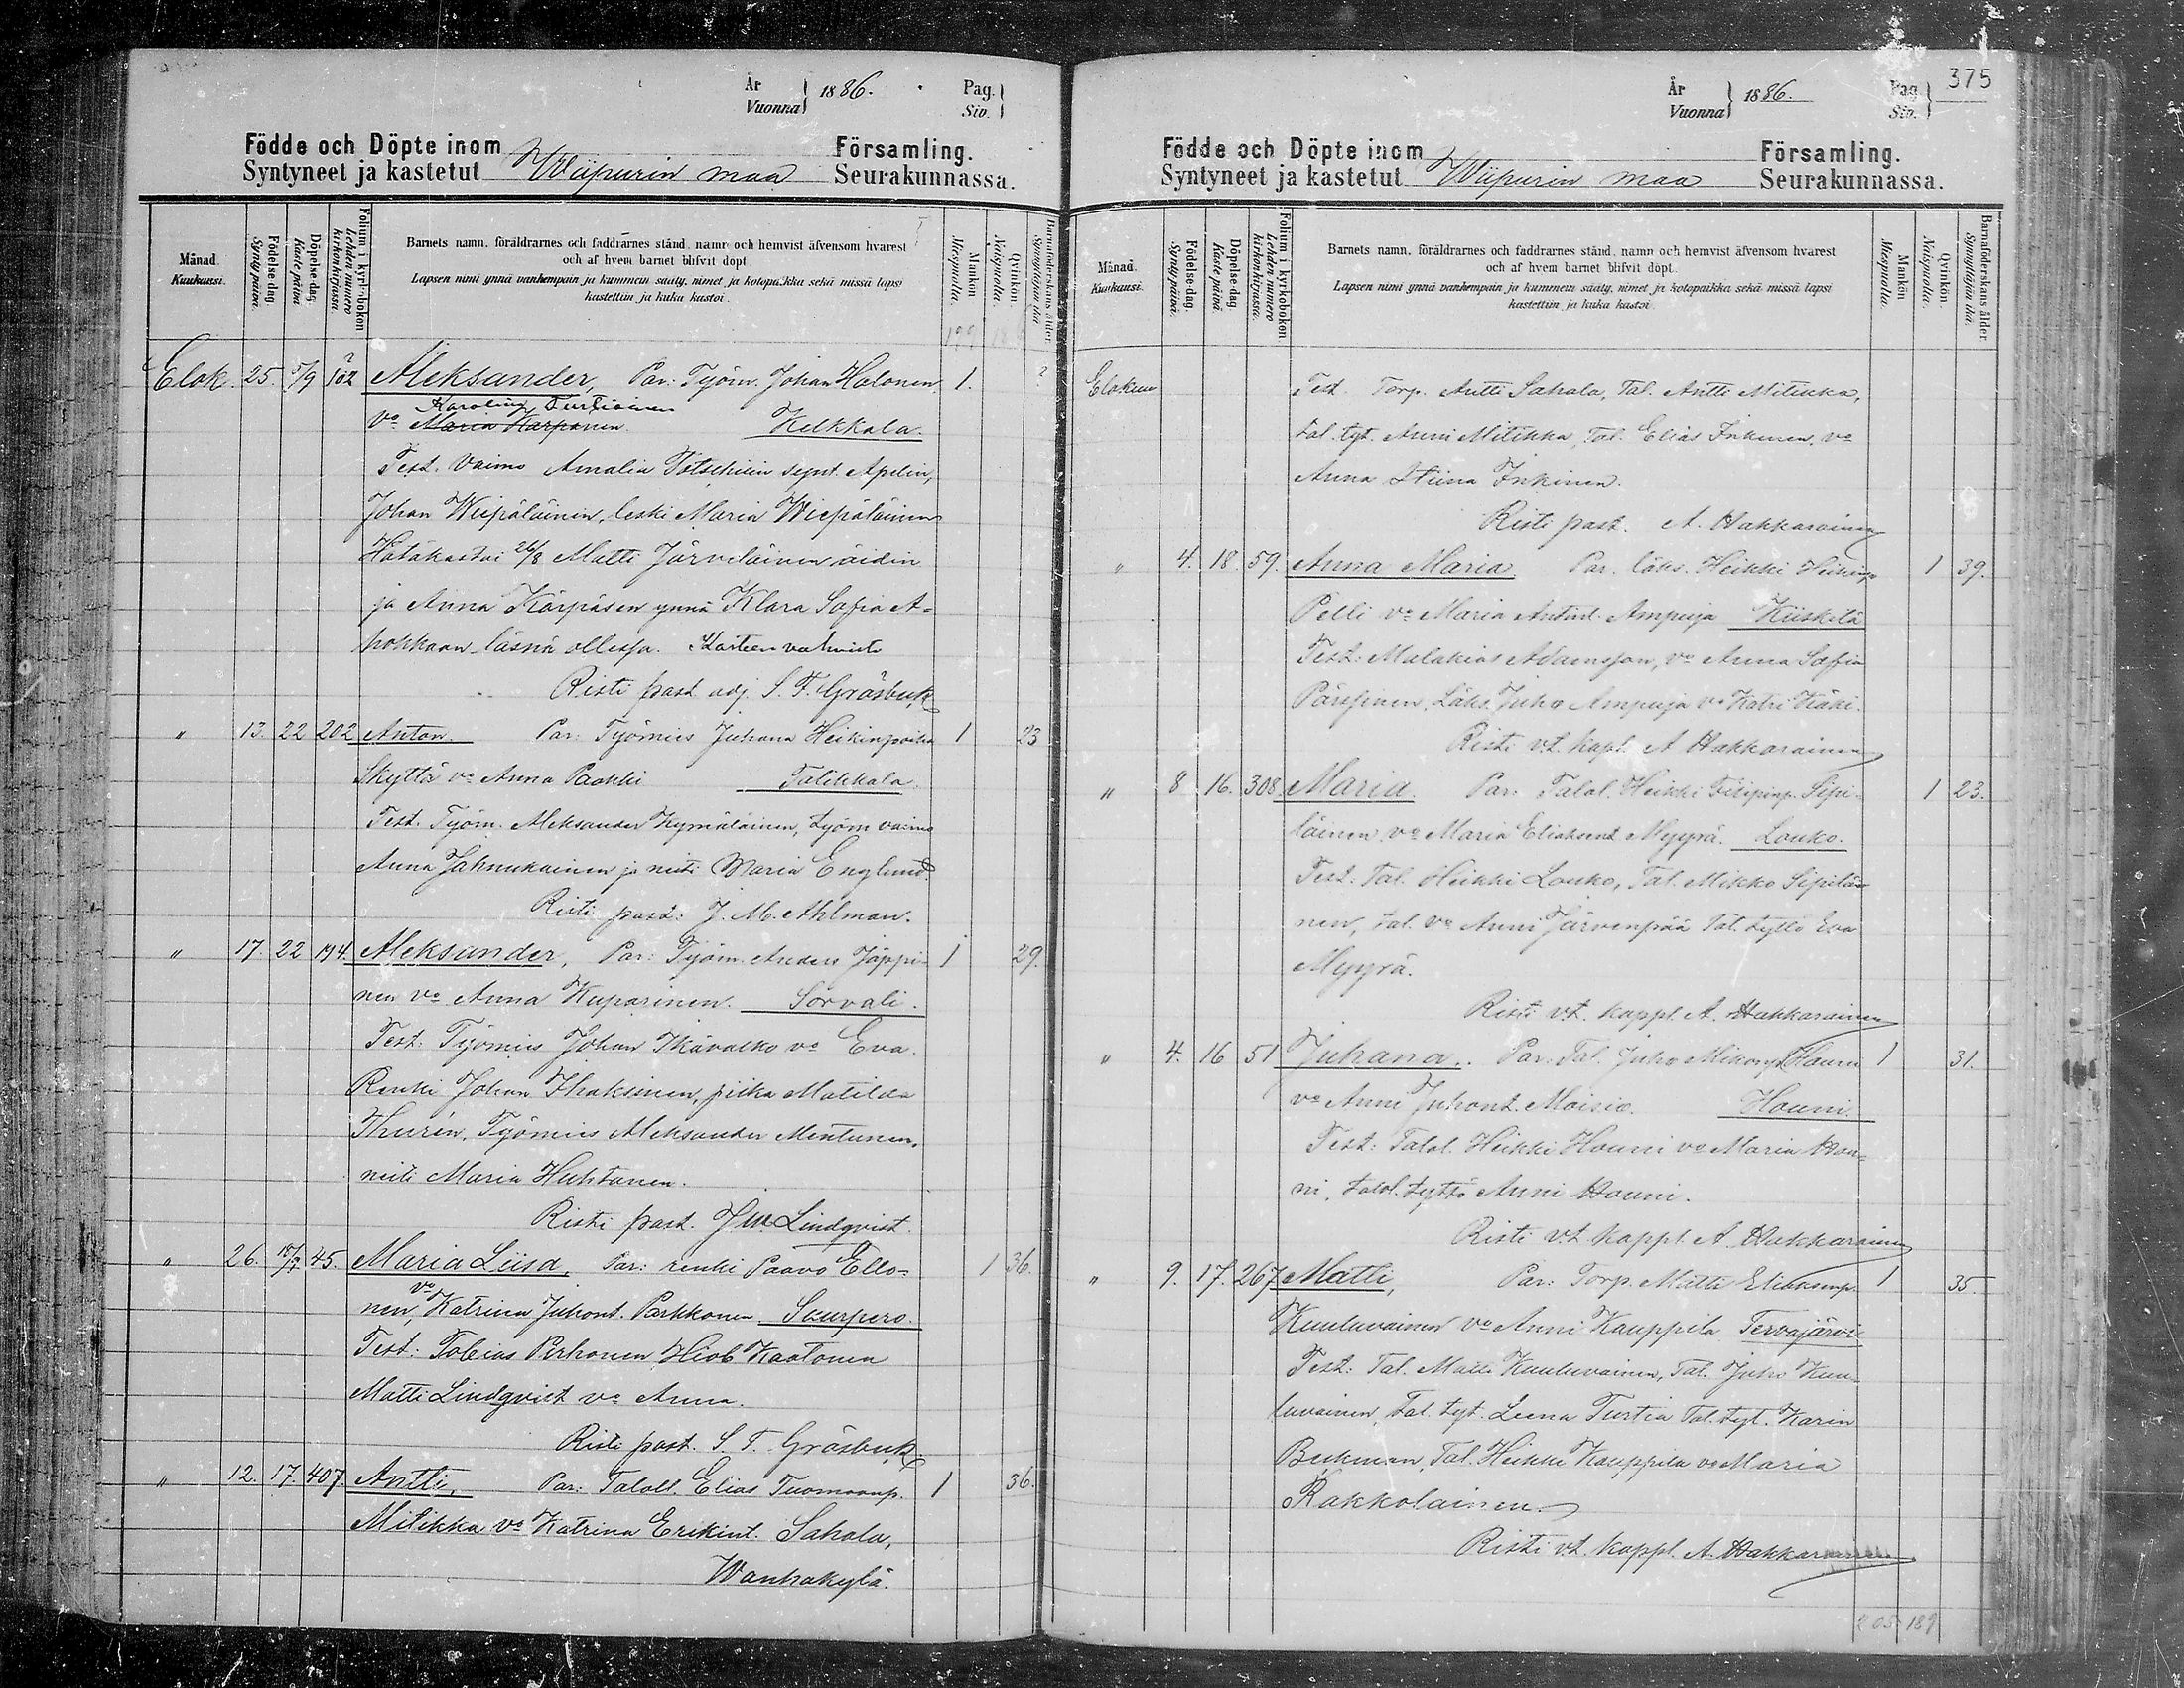 År
Vuonna } 1886.
Pag.
Siv. }
Födde och Döpte inom Församling.
Syntyneet ja kastetut Wiipurin maa Seurakunnassa.
Månad. Kuukausi.
Födelse dag. Synty päivä.
Döpelse dag. Kaste päivä
Folium i kyrkobokon Lehden numero kirkonkirjassa.
Barnets namn, föräldrarnes och faddrarnes stånd, namn och hemvist äfvensom hvarest
och af hvem barnet blifvit döpt.
Lapsen nimi ynnä vanhempain ja kummein sääty, nimet ja kotopaikka sekä missä lapsi
kastettiin ja kuka kastoi.
Mankön Miespuolia.
Qvinkön. Naispuolia.
Barnaföderskans ålder. Synnyttäjän ikä
Elok. 25. 5/9 102 Aleksander, Par: Työm. Johan Halonen 1. ?
Karolina Turtiainen
vo Maria Karponen. Kelkkala.
Test. Vaimo Amalia Totschiin synt. Apelin,
Johan Wiipäläinen, leski Maria Wiepäläinen
Hätäkastoi 26/8 Matti Järveläinen äidin
ja Anna Kärpäsen ynnä Klara Sofia A-
hokkaan läsnä ollessa. Kasteen vahvisti
Risti past. adj. S. F. Gräsbeck
" 13. 22 202 Anton. Par: Työmies Juhana Heikinpoika 1 23
Skyttä vo Anna Paakki Talikkala.
Test. Työm. Aleksander Kymäläinen, työm vaimo
Anna Jahnukainen ja neiti Maria Englund.
Risti past: J. M. Ahlman.
" 17. 22 194. Aleksander, Par: Työm. Anders Jäppi- 1 29.
nen vo Anna Kuparinen. Sorvali.
Test: Työmies Johan Ikävalko vo Eva.
Renki Johan Ihaksinen, piika Matilda
Thurén, Työmies Aleksander Mentunen,
neiti Maria Huhtanen.
Risti past. J W Lindqvist.
" 26. 18/9 45. Maria Liisa, Par: renki Paavo Ello- 1 36.
nen, vo Katrina Juhont. Parkkonen Suurpero.
Test: Tobias Pirhonen, Hiob Kaatonen
Matti Lindqvist vo Anna.
Risti past. S. F. Gräsbeck
" 12. 17. 407. Antti, Par: Taloll. Elias Tuomaanp. 1 36.
Mitikka vo Katrina Erikint. Sahala,
Wanhakylä.
375
År
Vuonna } 1886.
Pag
Siv. }
Födde och Döpte inom Församling.
Syntyneet ja kastetut Wiipurin maa Seurakunnassa.
Månad. Kuukausi.
Födelse dag. Synty päivä.
Döpelse dag. Kaste päivä
Folium i kyrkobokon Lehden numero kirkonkirjassa.
Barnets namn, föräldrarnes och faddrarnes stånd, namn och hemvist äfvensom hvarest
och af hvem barnet blifvit döpt.
Lapsen nimi ynnä vanhempain ja kummein sääty, nimet ja kotopaikka sekä missä lapsi
kastettiin ja kuka kastoi.
Mankön Miespuolia.
Qvinkön. Naispuolia.
Barnaföderskans ålder. Synnyttäjän ikä.
Elokuu Test. Torp. Antti Sahala, Tal. Antti Mitikka,
tal. tyt. Anni Mitikka, Tal. Elias Inkinen, vo
Anna Stiina Inkinen.
Risti past. A. Hakkarainen
" 4. 18. 59. Anna Maria. Par. läks. Heikki Heikinp 1 39.
Pelli vo Maria Antint. Ampuja Kiiskilä
Test: Malakias Adamsson, vo Anna Sofia
Pärssinen, Läks. Juho Ampuja vo Katri Käki.
Risti v.t. kapl. A Hakkarainen
" 8 16. 308 Maria. Par: Talol. Heikki Filipinp. Sipi- 1 23.
läinen vo Maria Eliaksent. Myyrä. Louko.
Test. Tal. Heikki Louko, Tal. Mikko Sipiläi-
nen, tal. vo Anni Järvenpää Tal. tyttö Eva
Myyrä.
Risti v.t. kappl. A. Hakkarainen
" 4. 16 51 Juhana. Par: Tal. Juho Mikonp. Houni 1 31.
vo Anni Juhont. Moisio. Houni
Test: Talol. Heikki Houni vo Maria Hou-
ni, talol. tyttö Anni Houni.
Risti v.t. kappl. A. Hakkarainen
" 9. 17. 267 Matti, Par: Torp. Matti Eliaksenp. 1 35.
Kuuluvainen vo Anni Kauppila Tervajärvi
Test: Tal. Matti Kuuluvainen, Tal. Juho Kuu-
luvainen, Tal. tyt. Leena Turtia Tal. tyt. Karin
Beckman, Tal. Heikki Kauppila vo Maria
Rakkolainen.
Risti v.t. kappl. A. Hakkarainen
205 189